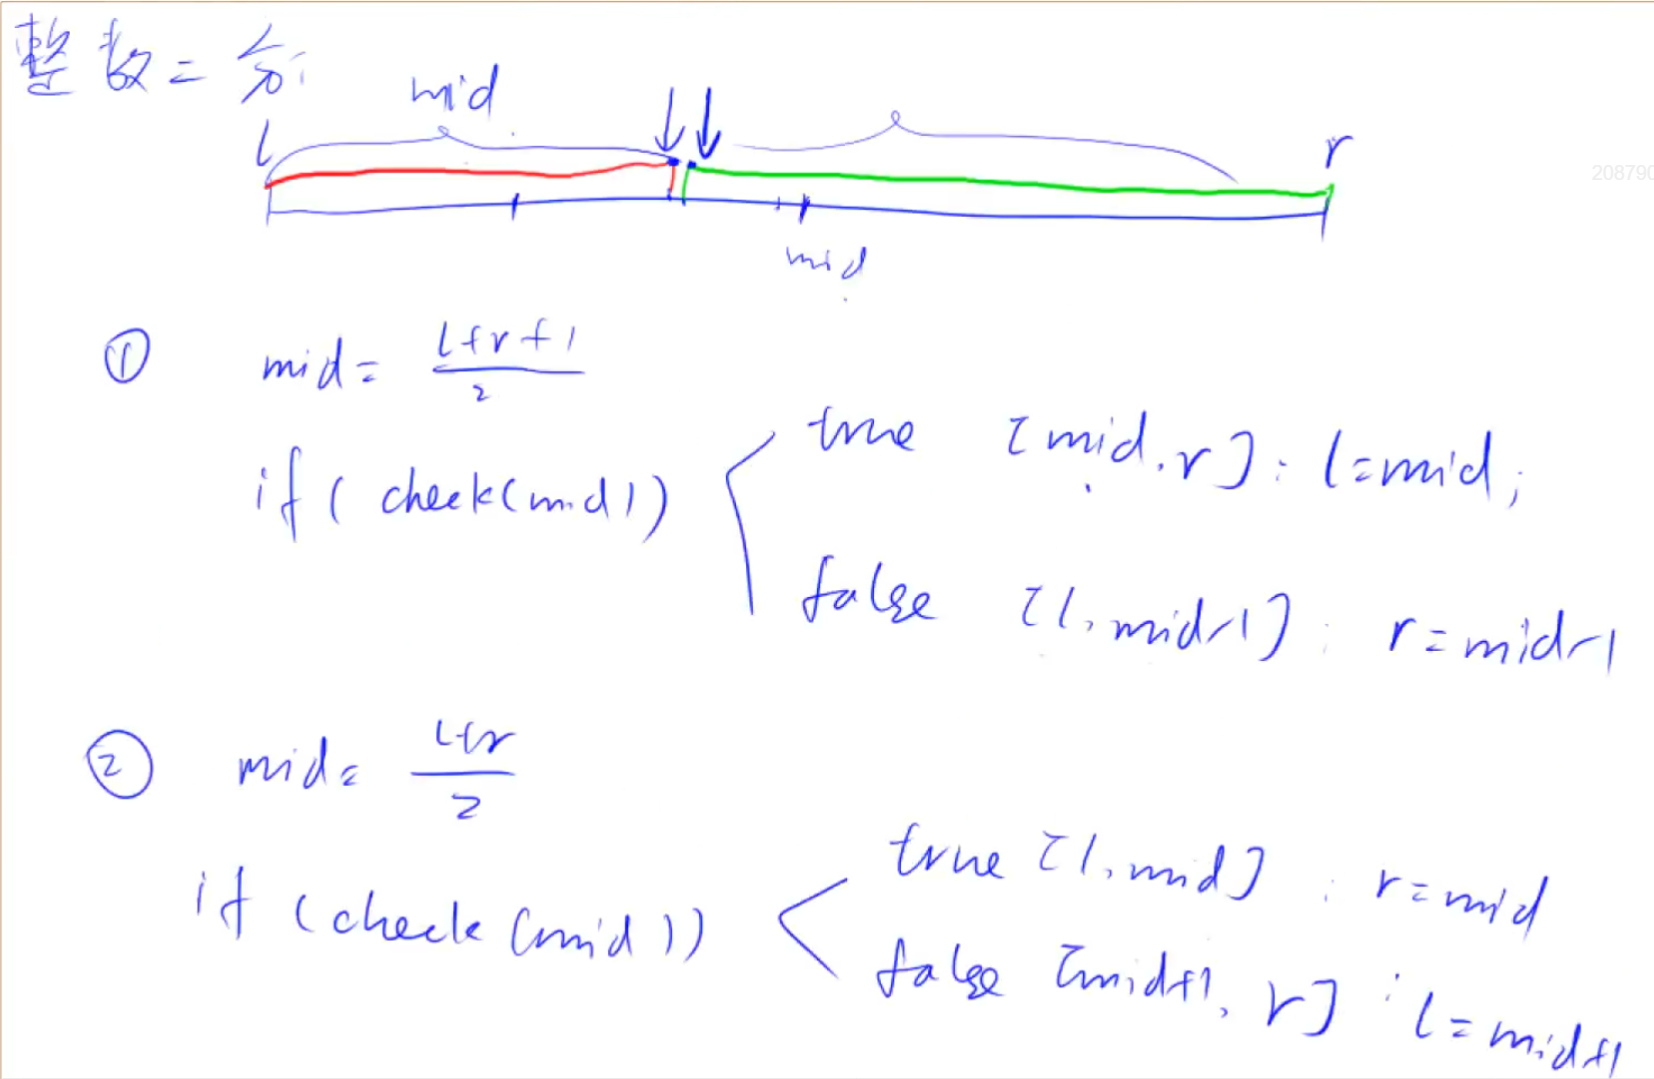 整数二分
mid
l
r
208790
mid
① mid = (l+r+1)/2
if ( check(mid))
true [mid, r] : l=mid;
false [l, mid-1] : r=mid-1
② mid = (l+r)/2
if (check (mid))
true [l, mid] : r=mid
false [mid+1, r] : l=mid+1